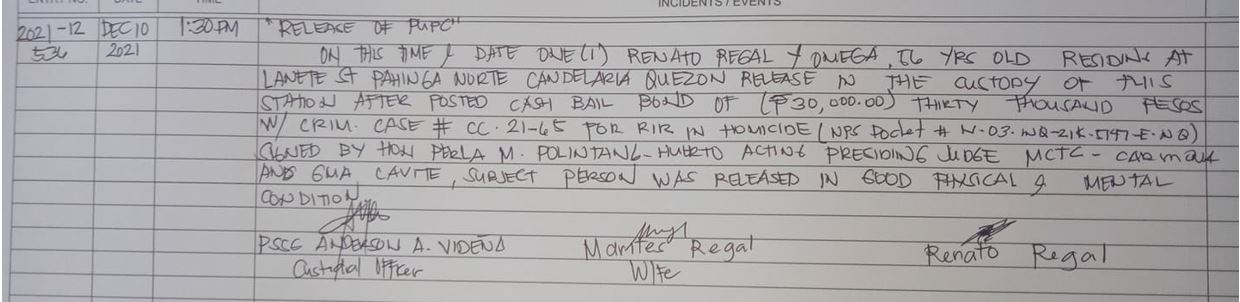 INCIDENTS / EVENTS
2021-12 DEC 10 1:30 PM "RELEASE OF PUPC"
536 2021 ON THIS TIME & DATE ONE (1) RENATO REGAL Y OMEGA, 56 YRS OLD RESIDING AT
LANETE ST PAHINGA NORTE CANDELARIA QUEZON RELEASE IN THE CUSTODY OF THIS
STATION AFTER POSTED CASH BAIL BOND OF (₱30,000.00) THIRTY THOUSAND PESOS
W/ CRIM. CASE # CC. 21-65 FOR RIR IN HOMICIDE (NPS Docket # IV-03-INQ-21K-5147-E-NQ)
SIGNED BY HON PERLA M. POLINTANG-HUERTO ACTING PRESIDING JUDGE MCTC - CARMONA
AND GMA CAVITE, SUBJECT PERSON WAS RELEASED IN GOOD PHYSICAL & MENTAL
CONDITION
PSSG ANDERSON A. VIDEÑA Marites Regal Renato Regal
Custodial Officer Wife